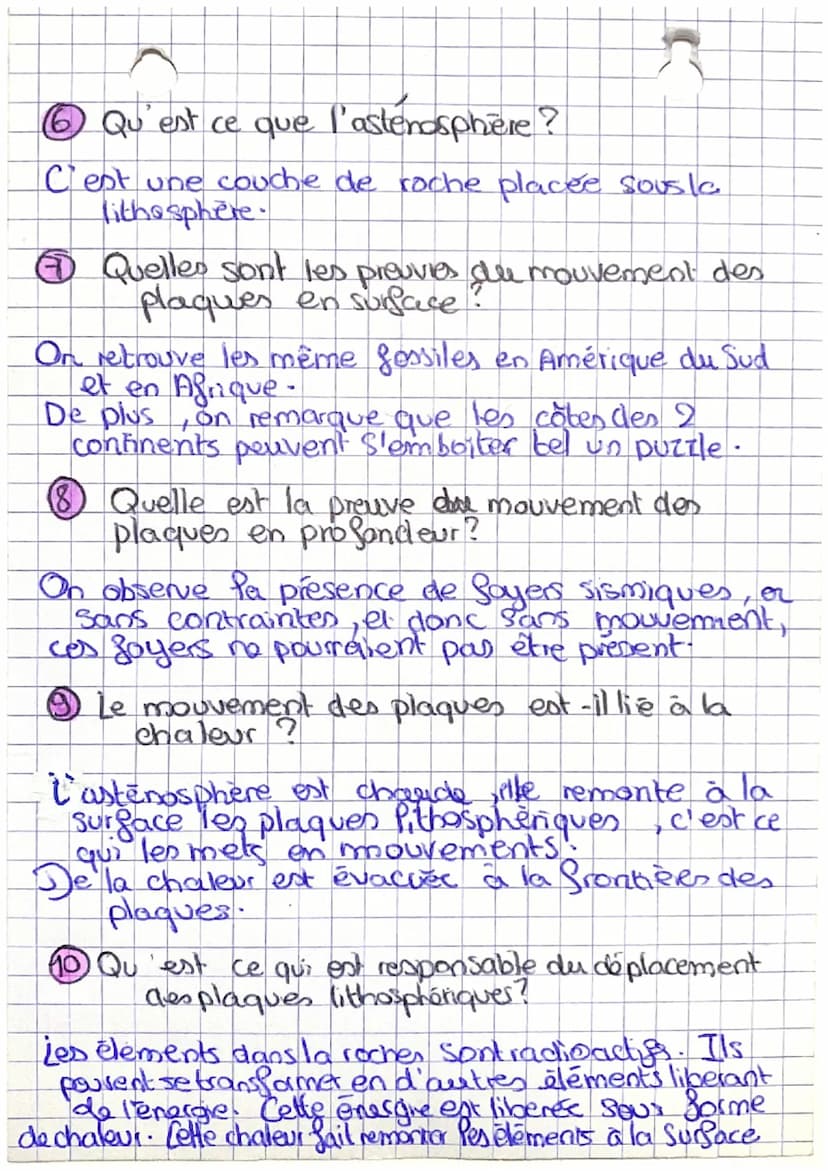 6 Qu'est ce que l'asténosphère?
C'est une couche de roche placée sous la
lithosphère.
7 Quelles sont les preuves du mouvement des
plaques en surface?
On retrouve les même fossiles en Amérique du Sud
et en Afrique.
De plus, on remarque que les côtes des 2
continents peuvent s'emboiter tel un puzzle.
8 Quelle est la preuve du mouvement des
plaques en profondeur?
On observe la présence de foyers sismiques, or
sans contraintes, et donc sans mouvement,
ces foyers ne pourraient pas être présent.
9 Le mouvement des plaques est-il lié à la
chaleur?
L'asténosphère est chaude, elle remonte à la
surface les plaques lithosphériques, c'est ce
qui les mets en mouvements.
De la chaleur est évacuée à la frontières des
plaques.
10 Qu'est ce qui est responsable du déplacement
des plaques lithosphériques?
Les éléments dans la roches sont radioactifs. Ils
peuvent se transformer en d'autres éléments liberant
de l'énergie. Cette énergie est liberée sous forme
de chaleur. Cette chaleur fait remonter les éléments à la surface